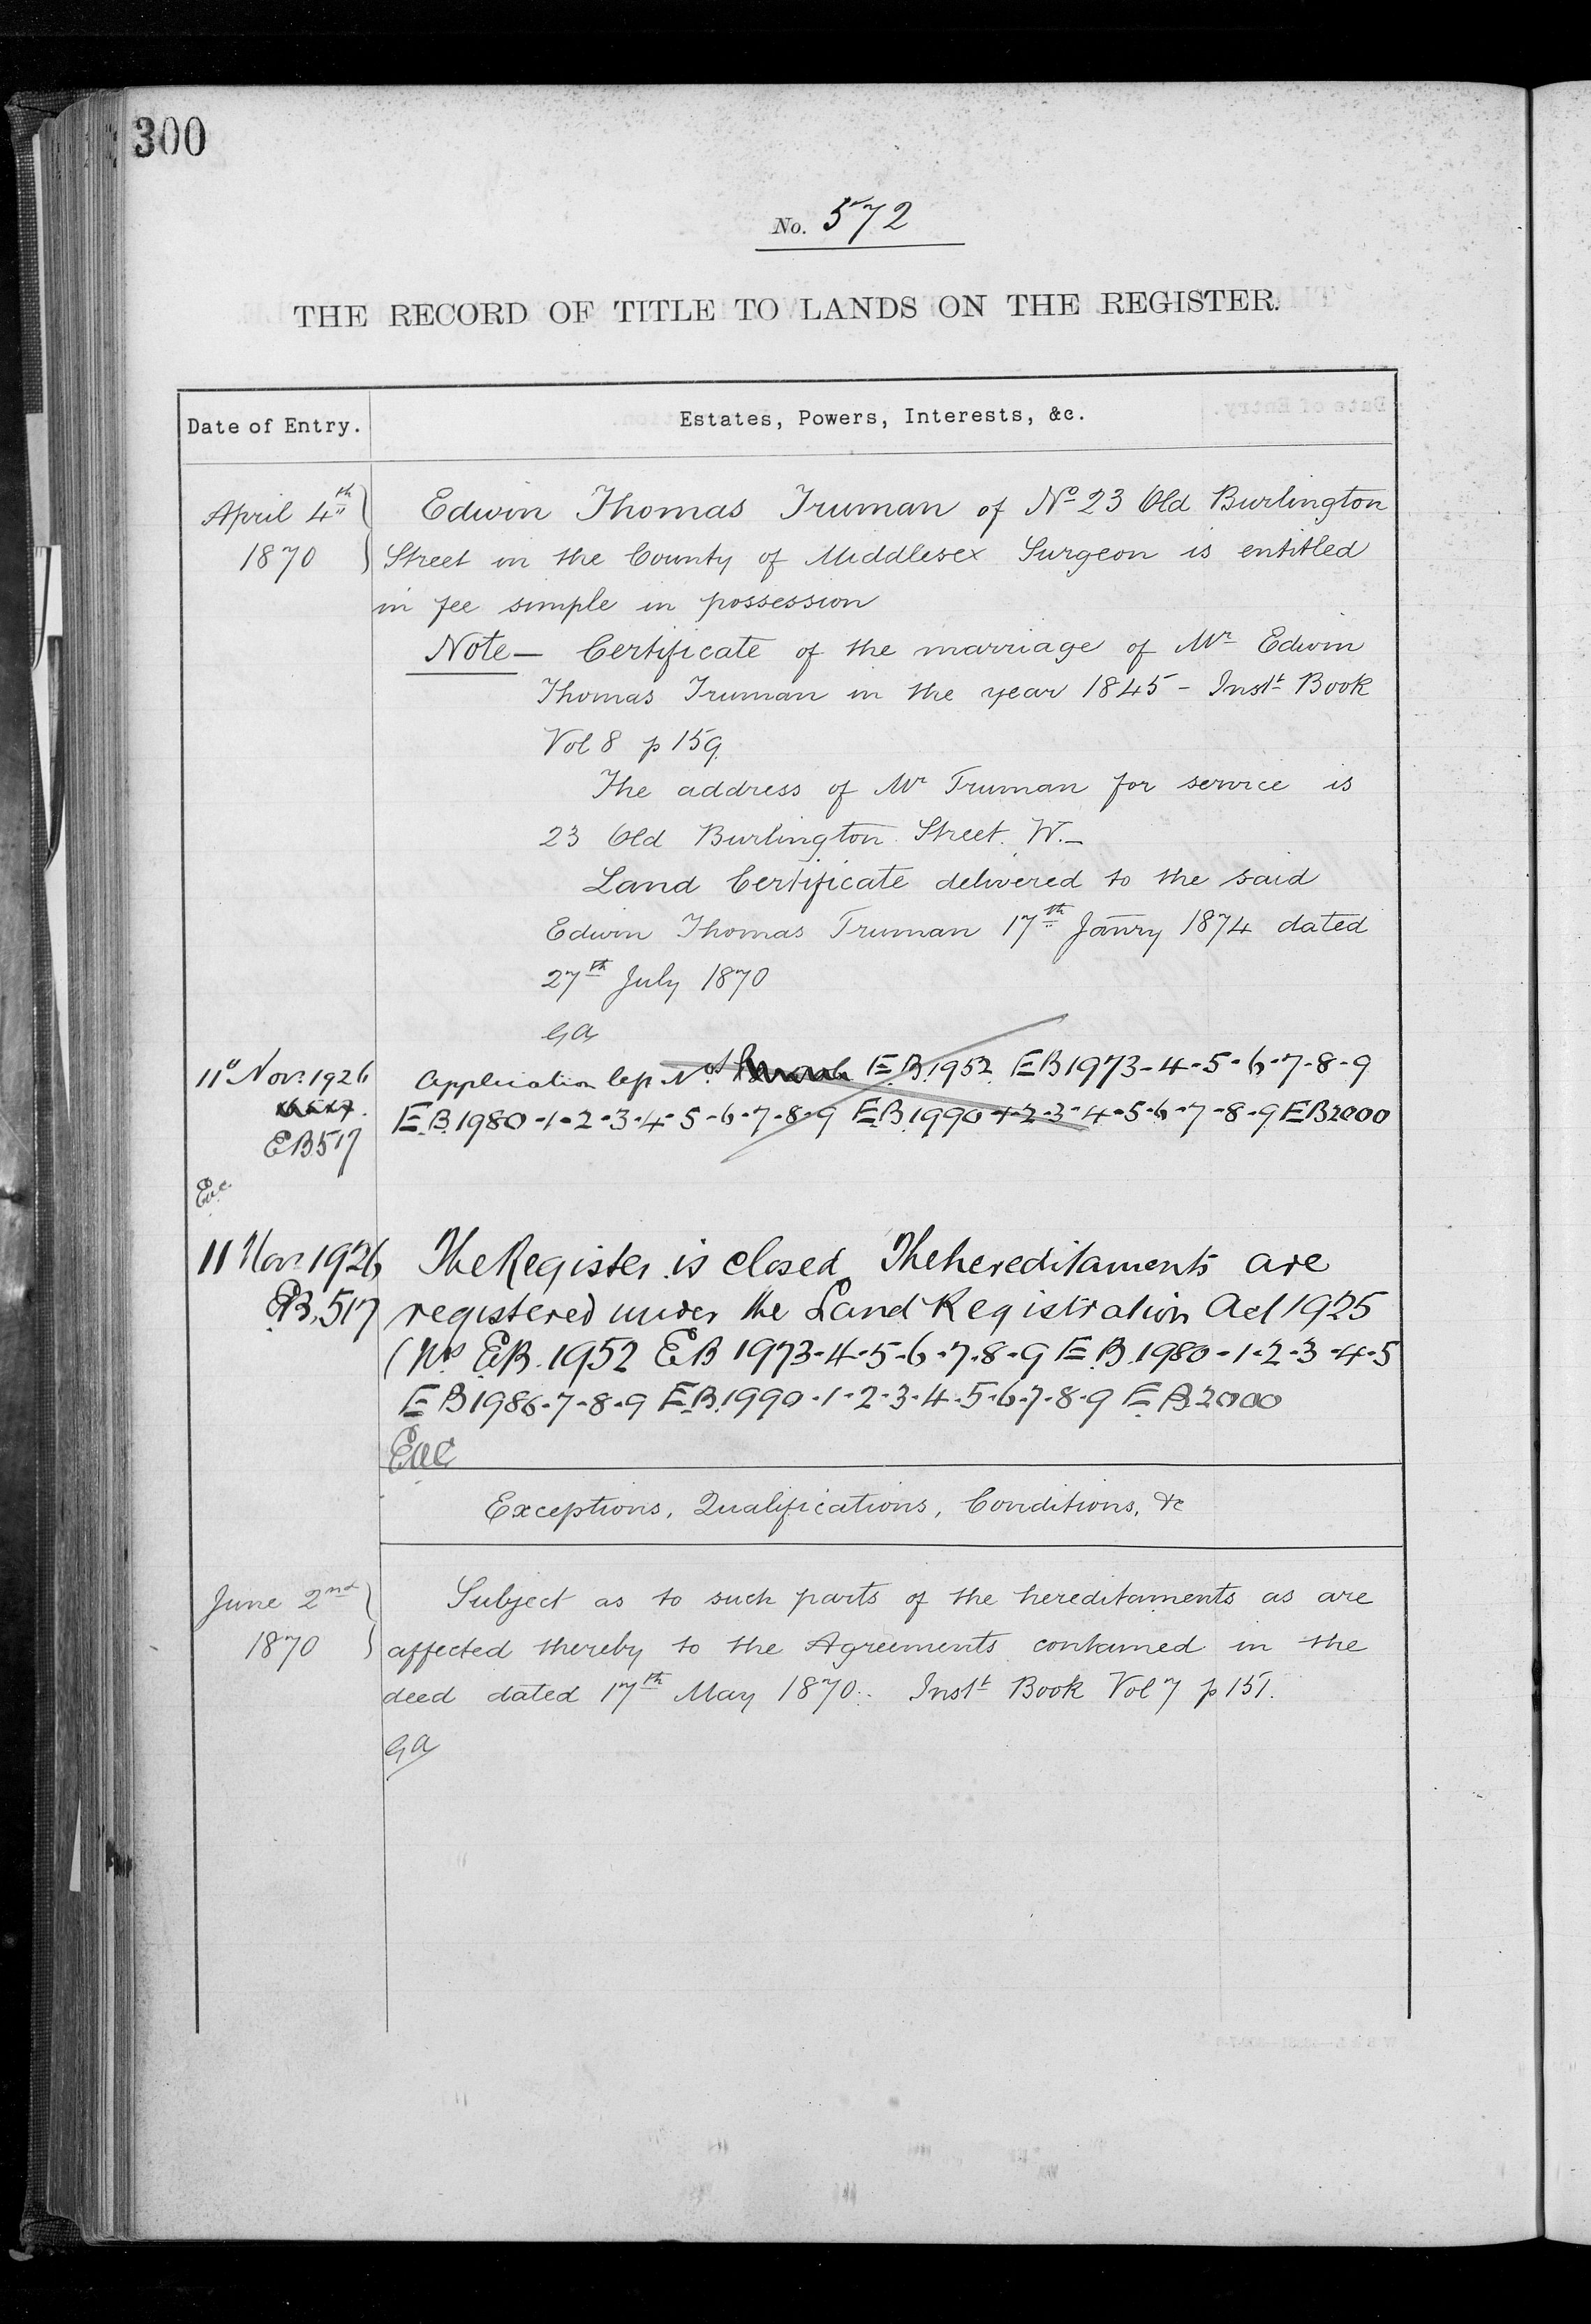 300
No. 572
THE RECORD OF TITLE TO LANDS ON THE REGISTER.
Date of Entry.
Estates, Powers, Interests, &c.
April 4th
1870
Edwin Thomas Truman of No 23 Old Burlington
Street in the County of Middlesex Surgeon is entitled
in fee simple in possession
Note — Certificate of the marriage of Mr Edwin
Thomas Truman in the year 1845 - Instt Book
Vol 8 p 159.
The address of Mr Truman for service is
23 Old Burlington Street. W. —
Land Certificate delivered to the said
Edwin Thomas Truman 17th Janry 1874 dated
27th July 1870
GA
11 Nov. 1926
EB517
Application Nos E.B.1952. EB1973-4-5-6-7-8-9
E.B.1980-1-2-3-4-5-6-7-8-9 E.B.1990-1-2-3-4-5-6-7-8-9 EB2000
Eac
11 Nov. 1926
EB.517
The Register is closed. The hereditaments are
registered under the Land Registration Act 1925
(Nos E.B.1952 EB 1973-4-5-6-7-8-9 E.B.1980-1-2-3-4-5
EB1986-7-8-9 E.B.1990-1-2-3-4-5-6-7-8-9 E.B.2000
Eac
Exceptions, Qualifications, Conditions, &c
June 2nd
1870
Subject as to such parts of the hereditaments as are
affected thereby to the Agreements contained in the
deed dated 17th May 1870. Instt Book Vol 7 p 151.
GA